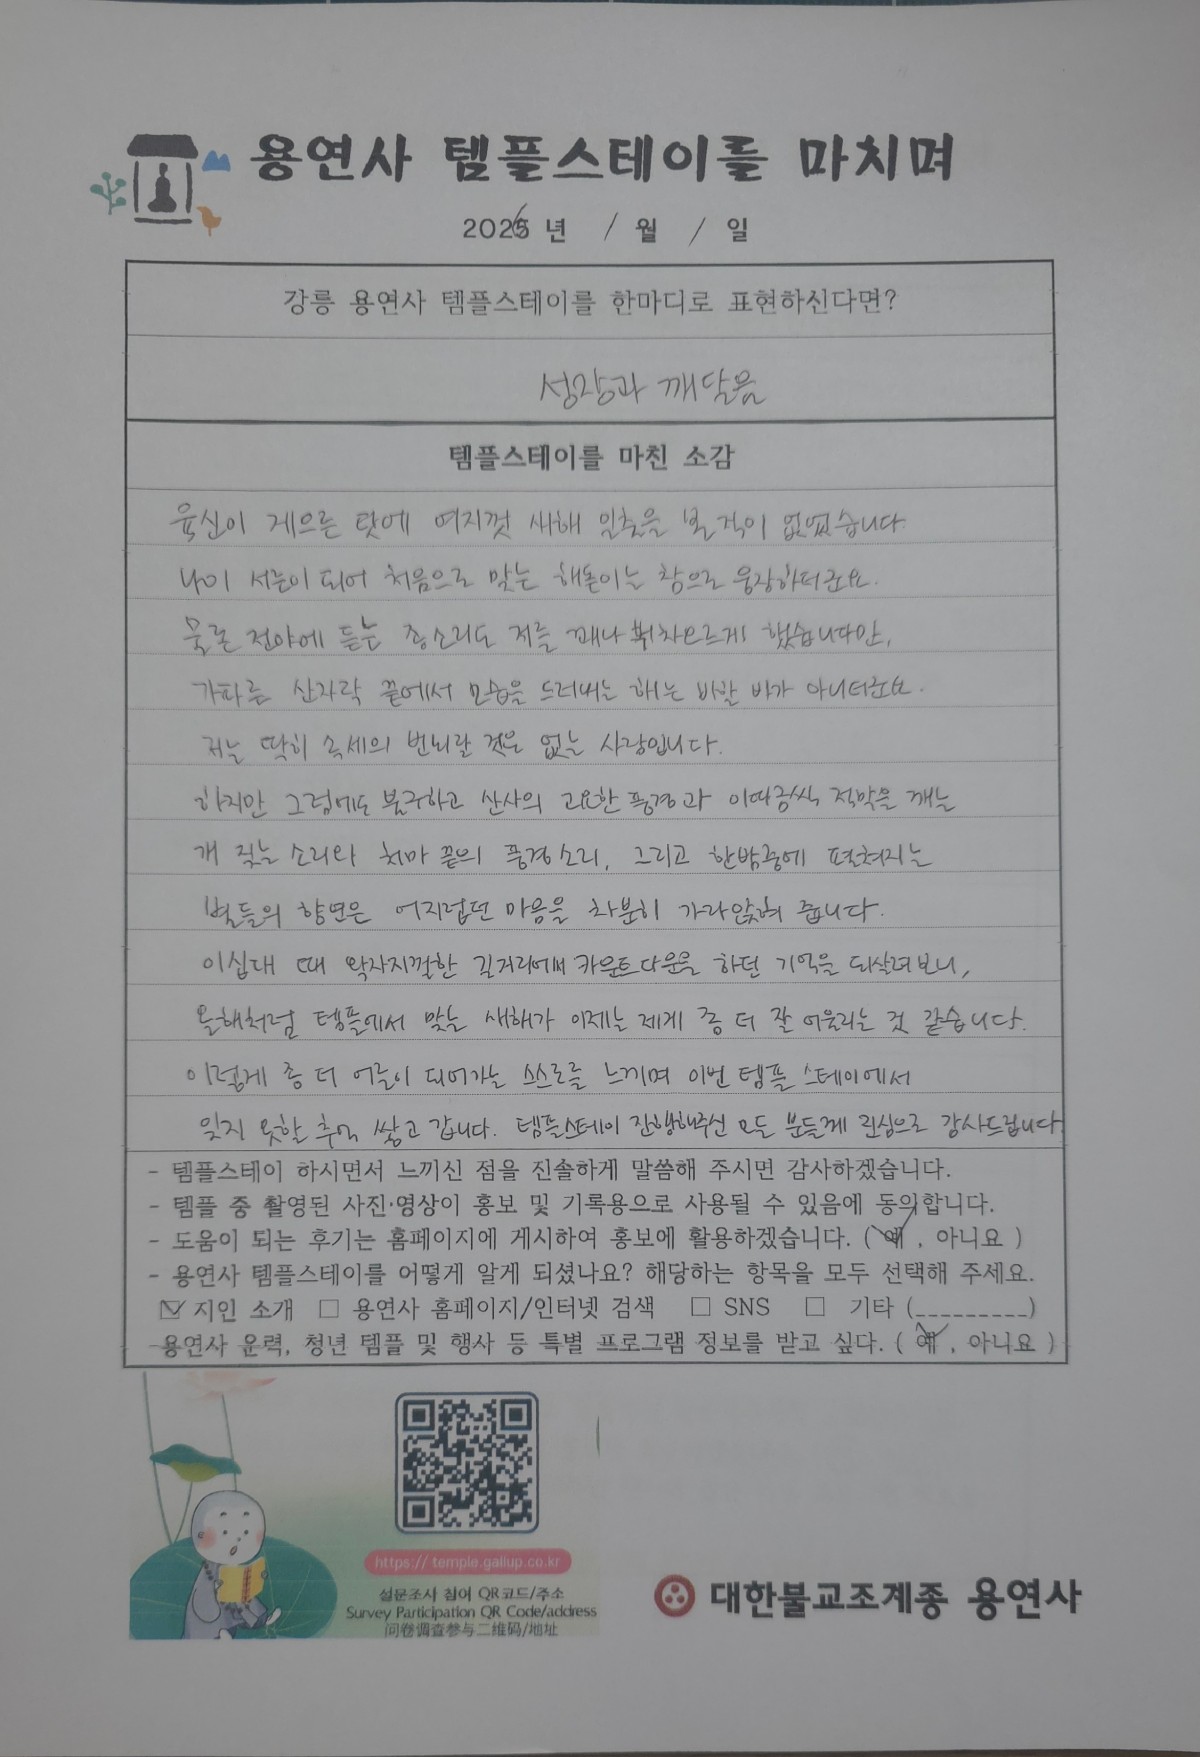 용연사 템플스테이를 마치며
2026년 1월 1일
강릉 용연사 템플스테이를 한마디로 표현하신다면?
성장과 깨달음
템플스테이를 마친 소감
육신이 게으른 탓에 여지껏 새해 일출을 본 적이 없었습니다.
나이 서른이 되어 처음으로 맞는 해돋이는 참으로 웅장하더군요.
물론 전야에 듣는 종소리도 저를 꽤나 벅차오르게 했습니다만,
가파른 산자락 끝에서 모습을 드러내는 해는 비할 바가 아니더군요.
저는 딱히 속세의 번뇌랄 것은 없는 사람입니다.
하지만 그럼에도 불구하고 산사의 고요한 풍경과 이따금씩 적막을 깨는
개 짖는 소리와 처마 끝의 풍경소리, 그리고 한밤중에 펼쳐지는
별들의 향연은 어지럽던 마음을 차분히 가라앉혀 줍니다.
이십대 때 왁자지껄한 길거리에서 카운트다운을 하던 기억을 되살려보니,
올해처럼 템플에서 맞는 새해가 이제는 제게 좀 더 잘 어울리는 것 같습니다.
이렇게 좀 더 어른이 되어가는 스스로를 느끼며 이번 템플 스테이에서
잊지 못할 추억 쌓고 갑니다. 템플스테이 진행해주신 모든 분들께 진심으로 감사드립니다.
- 템플스테이 하시면서 느끼신 점을 진솔하게 말씀해 주시면 감사하겠습니다.
- 템플 중 촬영된 사진·영상이 홍보 및 기록용으로 사용될 수 있음에 동의합니다.
- 도움이 되는 후기는 홈페이지에 게시하여 홍보에 활용하겠습니다. ( 예 , 아니요 )
- 용연사 템플스테이를 어떻게 알게 되셨나요? 해당하는 항목을 모두 선택해 주세요.
☑ 지인 소개 □ 용연사 홈페이지/인터넷 검색 □ SNS □ 기타 (_________)
-용연사 운력, 청년 템플 및 행사 등 특별 프로그램 정보를 받고 싶다. ( 예 , 아니요 )
https:// temple.gallup.co.kr
설문조사 참여 QR코드/주소
Survey Participation QR Code/address
问卷调查参与二维码/地址
대한불교조계종 용연사